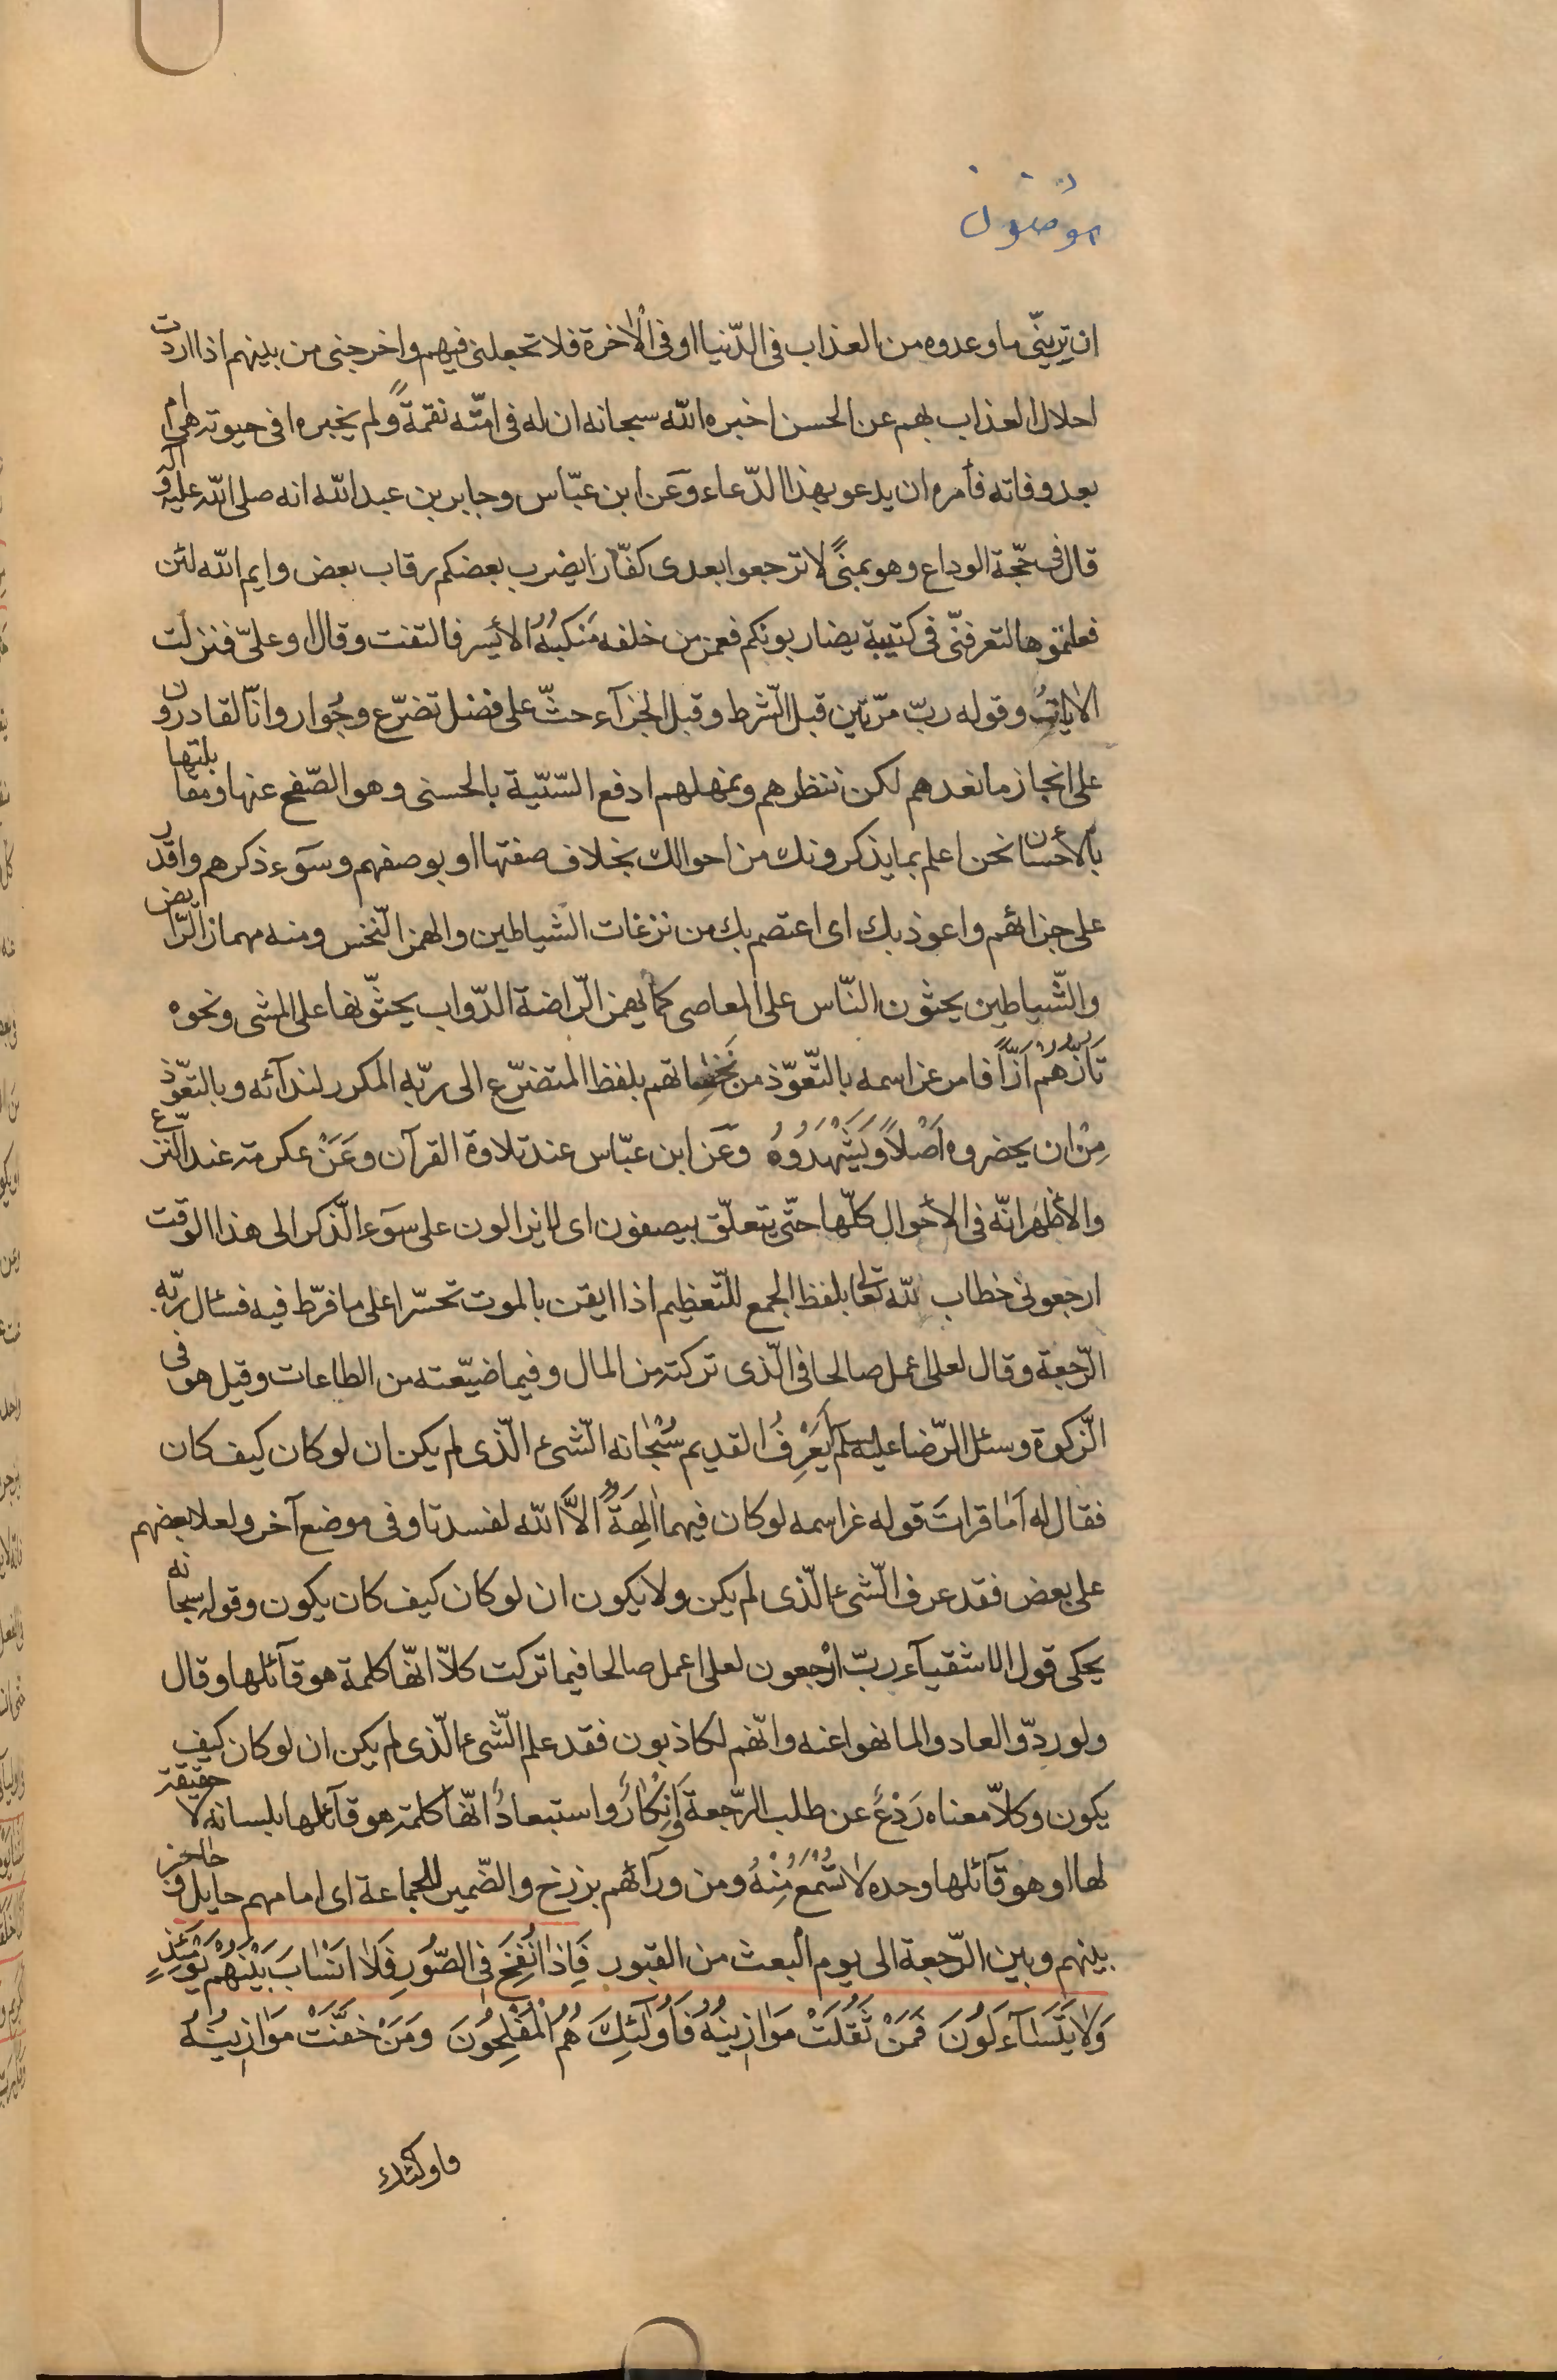 مؤمنون
ان ترینّی ما وعدوه من العذاب فی الدّنیا او فی الاٰخرة فلا تجعلنی فیهم واخرجنی من بینهم اذا اردت
احلال العذاب بهم عن الحسن اخبره الله سبحانه ان له فی امّته نقمةً ولم یخبره افی حیوته هی ام
بعد وفاته فأمره ان یدعو بهذا الدّعاء وَعَن ابن عبّاس وجابر بن عبد الله انه صلی الله علیه وآله
قال فی حجّة الوداع وهو بمنیً لا ترجعوا بعدی کفّارا یضرب بعضکم رقاب بعض وایم الله لئن
فعلتموها لتعرفنّی فی کتیبة یضاربونکم فغمز من خلفه مَنکبُهُ الأیسر فالتفت وقال او علیّ فنزلت
الاٰیات وقوله ربّ مرّتین قبل الشّرط وقبل الجزآء حثّ علی فضل تضرّع وجُوار وانّا لقادرون
علی انجاز ما نعدهم لکن ننتظرهم ونمهلهم ادفع السّیّیة بالحسنی وهو الصّفح عنها ومقابلتها
بالأحسان نحن اعلم بما یذکرونك من احوالك بخلاف صفتها او بوصفهم وسوٓء ذکرهم واقدر
علی جزائهم واعوذ بك ای اعتصم بك من نزغات الشیاطین والهمز النّخس ومنه مهماز الرّایض
والشّیاطین یحثون النّاس علی المعاصی کما یهمز الرّاضة الدّواب یحثّونها علی المشی ونحوه
تَأزّهُم اَزّاً فامر عز اسمه بالتّعوّذ من نخساتهم بلفظ المتضرّع الی ربّه المکرر لندآئه وبالتعوّذ
مِنْ ان یحضروه اَصْلاً وَیَشْهَدُوهُ وعَن ابن عبّاس عند تلاوة القرآن وعَنْ عکرمة عند النّزع
والأظهر انّه فی الأحوال کلّها حتّی یتعلّق بیصفون ای لا یزالون علی سوٓء الذّکر الی هذا الوقت
ارجعونی خطاب لله تعالی بلفظ الجمع للتّعظیم اذا ایقن بالموت تحسّرا علی ما فرّط فیه فسئال ربّه
الرّجعة وقال لعلی اعمل صالحا فی الّذی ترکته من المال وفیما ضیّعته من الطاعات وقیل هو فی
الزّکوة وسئل الرّضا علیه السلم اَیَعْرِفُ القدیم سُبْحانه الشّیء الّذی لم یکن ان لو کان کیف کان
فقال له اَما قراتَ قوله عز اسمه لو کان فیهما اٰلِهَةٌ الاَّ الله لفسدتا وفی موضع آخر ولعلا بعضهم
علی بعض فقد عرف الشّیء الّذی لم یکن ولا یکون ان لو کان کیف کان یکون وقوله سبحانه
یحکی قول الاشقیآء ربّ ارْجعون لعلی اعمل صالحا فیما ترکت کلاّ انّها کلمة هو قآئلها وقال
ولو ردّوا لعادوا لما نهوا عنه وانّهم لکاذبون فقد علم الشّیء الّذی لم یکن ان لو کان کیف
یکون وکلاّ معناه رَدْعٌ عن طلب الرّجعة وَاِنْکارٌ واستبعادٌ انّها کلمة هو قآئلها بلسانه لا حقیقة
لها او هو قآئلها وحده لا تُسْمَعُ مِنْهُ ومن ورآئهم برزخ والضّمیر للجماعة ای امامهم حایل وحاجز
بینهم وبین الرّجعة الی یوم البعث من القبور فَاِذا نُفِخَ فِی الصّورِ فَلاٰ انْسٰابَ بَیْنَهُمْ یَوْمَئِذٍ
وَلاٰ یَتَسٰآءَلُونَ فَمَنْ ثَقُلَتْ مَوٰازینُهُ فَاُولٰٓئِكَ هُمُ الْمُفْلِحُونَ وَمَنْ خَفَّتْ مَوٰازینُهُ
فاولئك